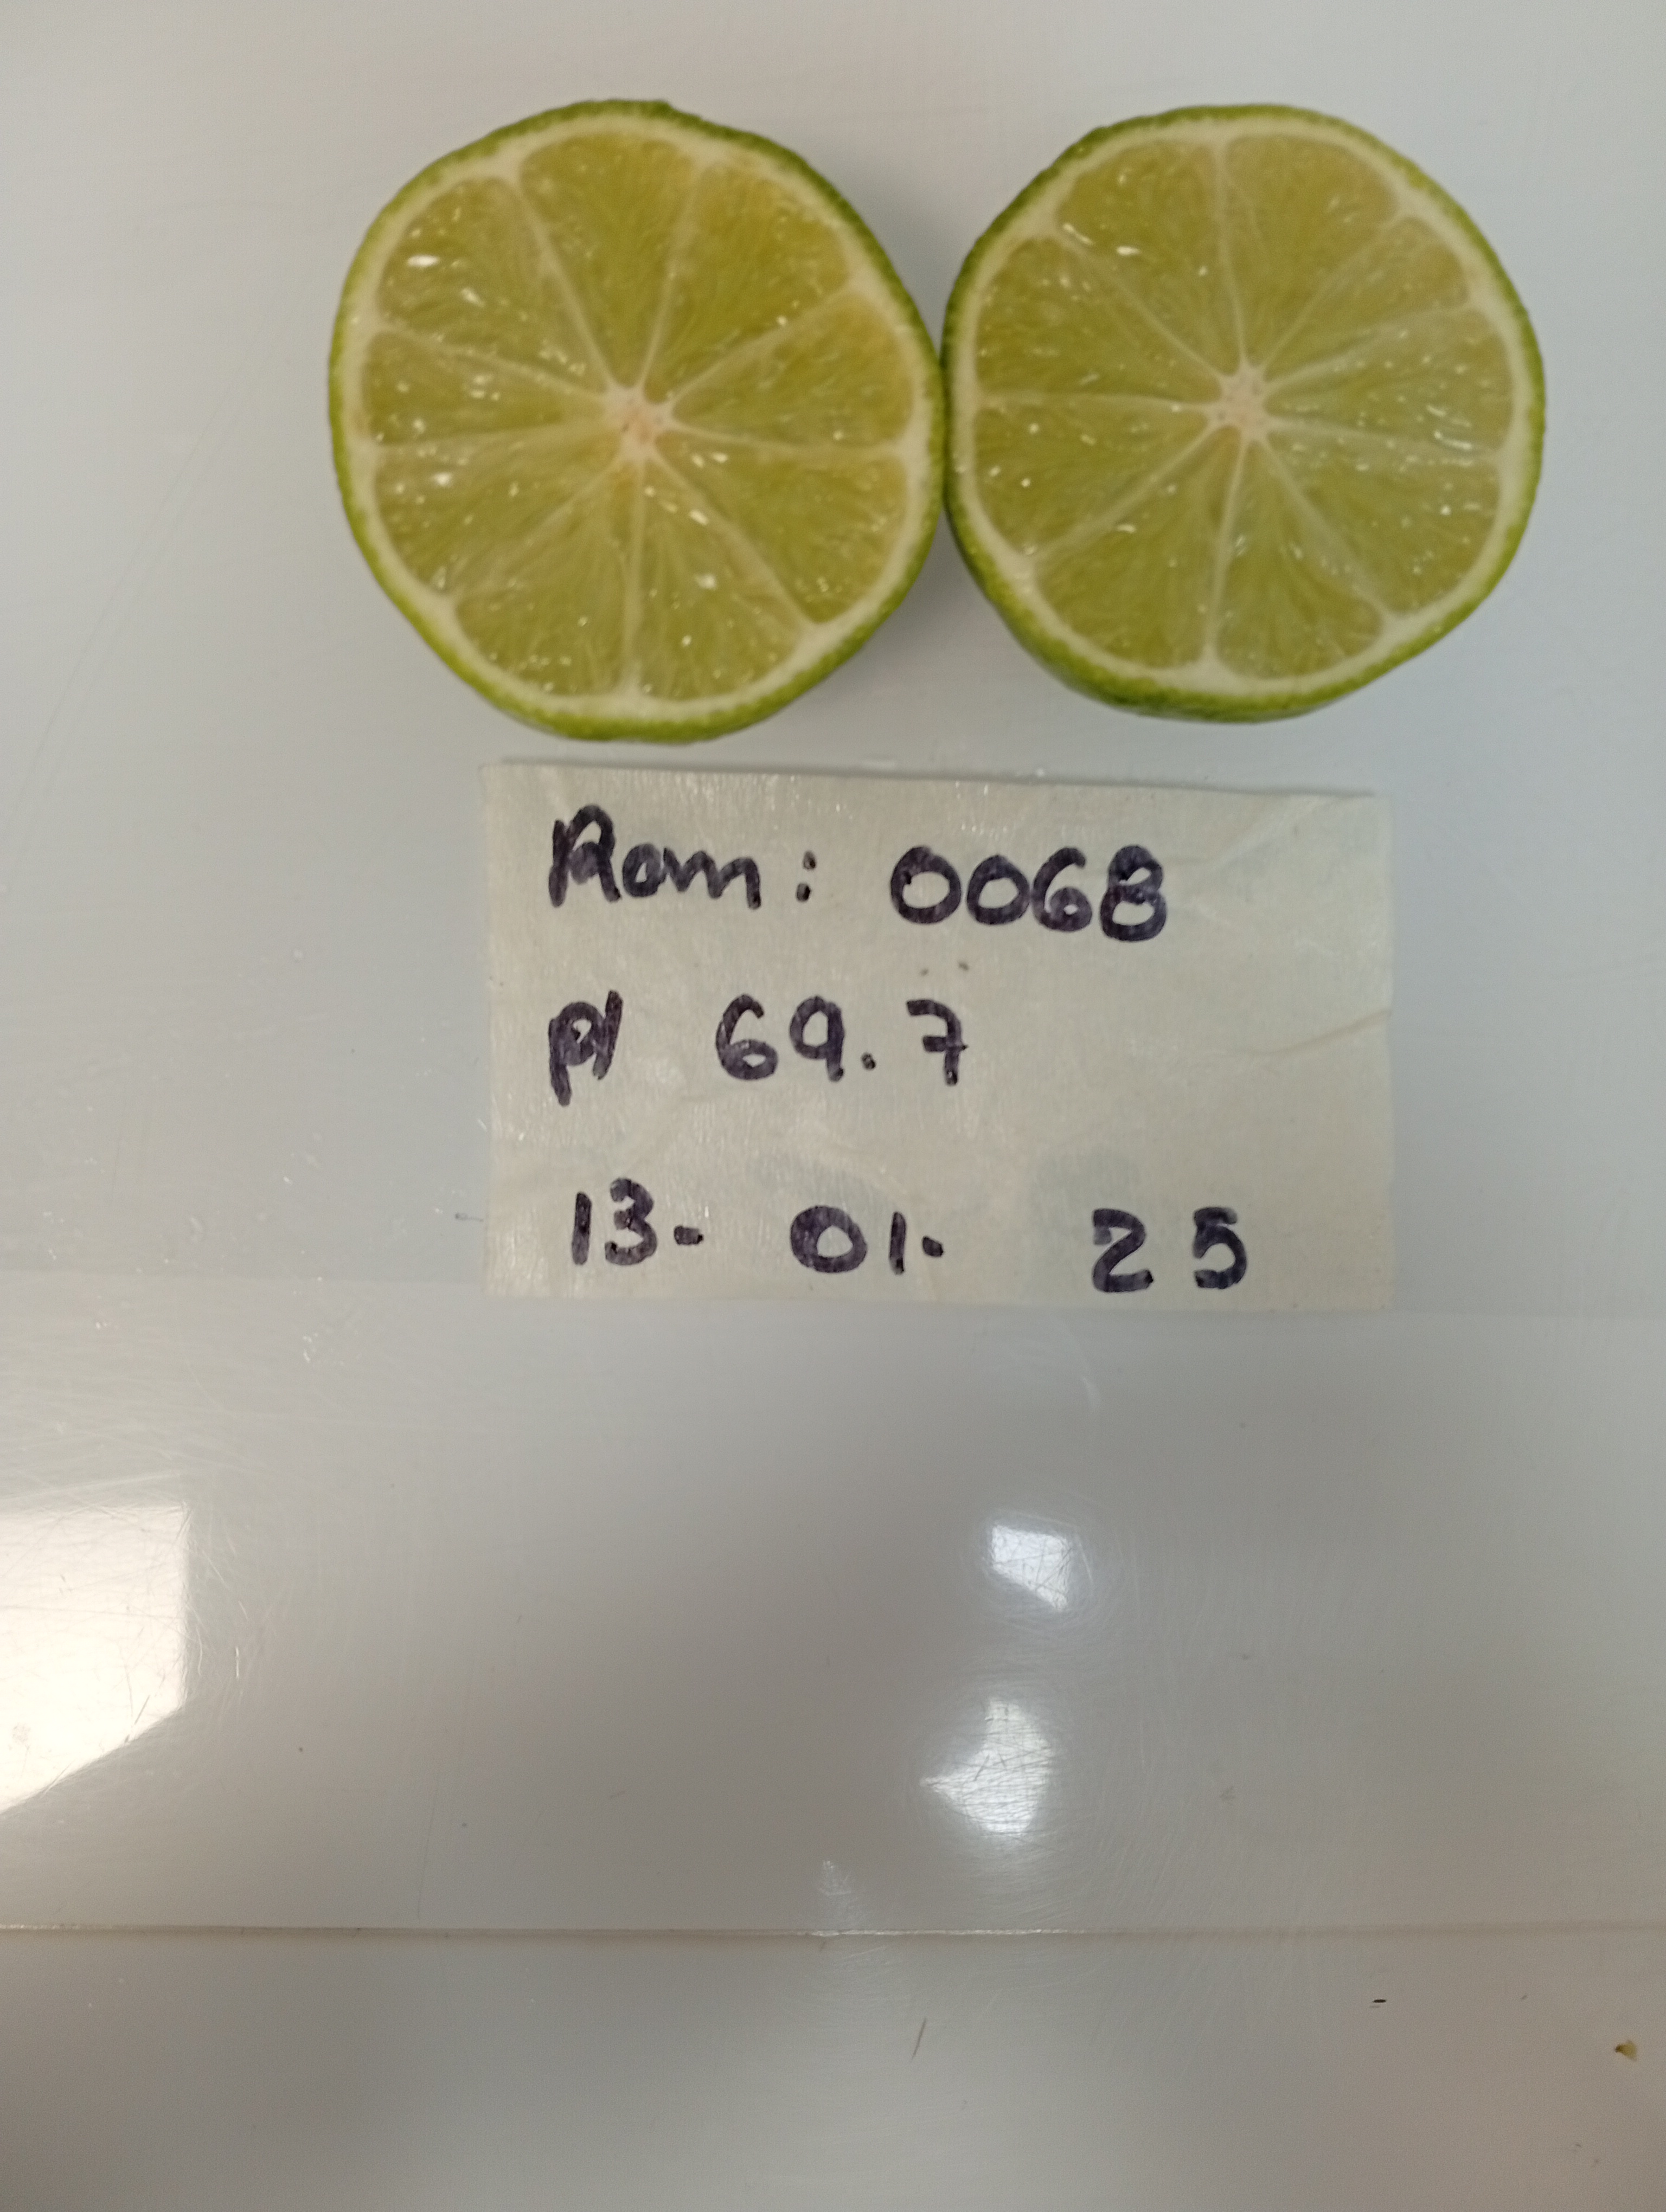 Rom: 0068
pl 69.7
13. 01. 25